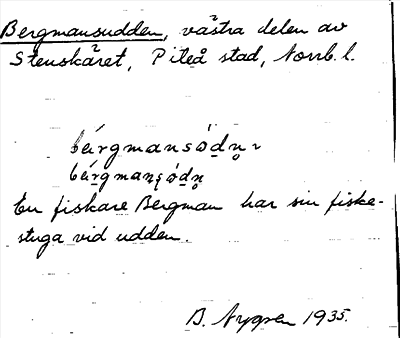 Bergmansudden, västra delen av
Stenskäret, Piteå stad, Norrb. l.
bárgmansǿdn̥ ~
bárgmaṇṣǿdn̥
En fiskare Bergman har sin fiske-
stuga vid udden.
B. Nygren 1935.